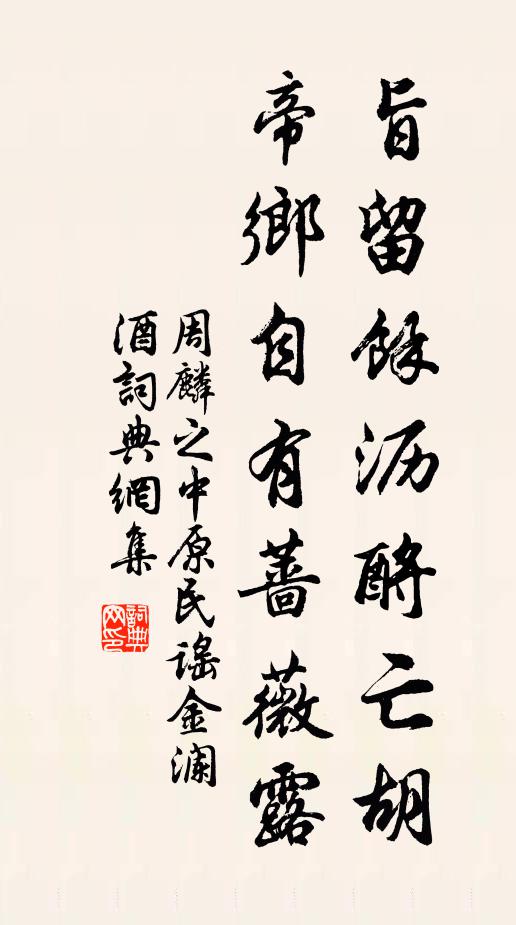 旨留餘沥酹亡胡
帝鄉自有薔薇露
周麟之中原民謠金澜
酒詞典網集
詞典网印